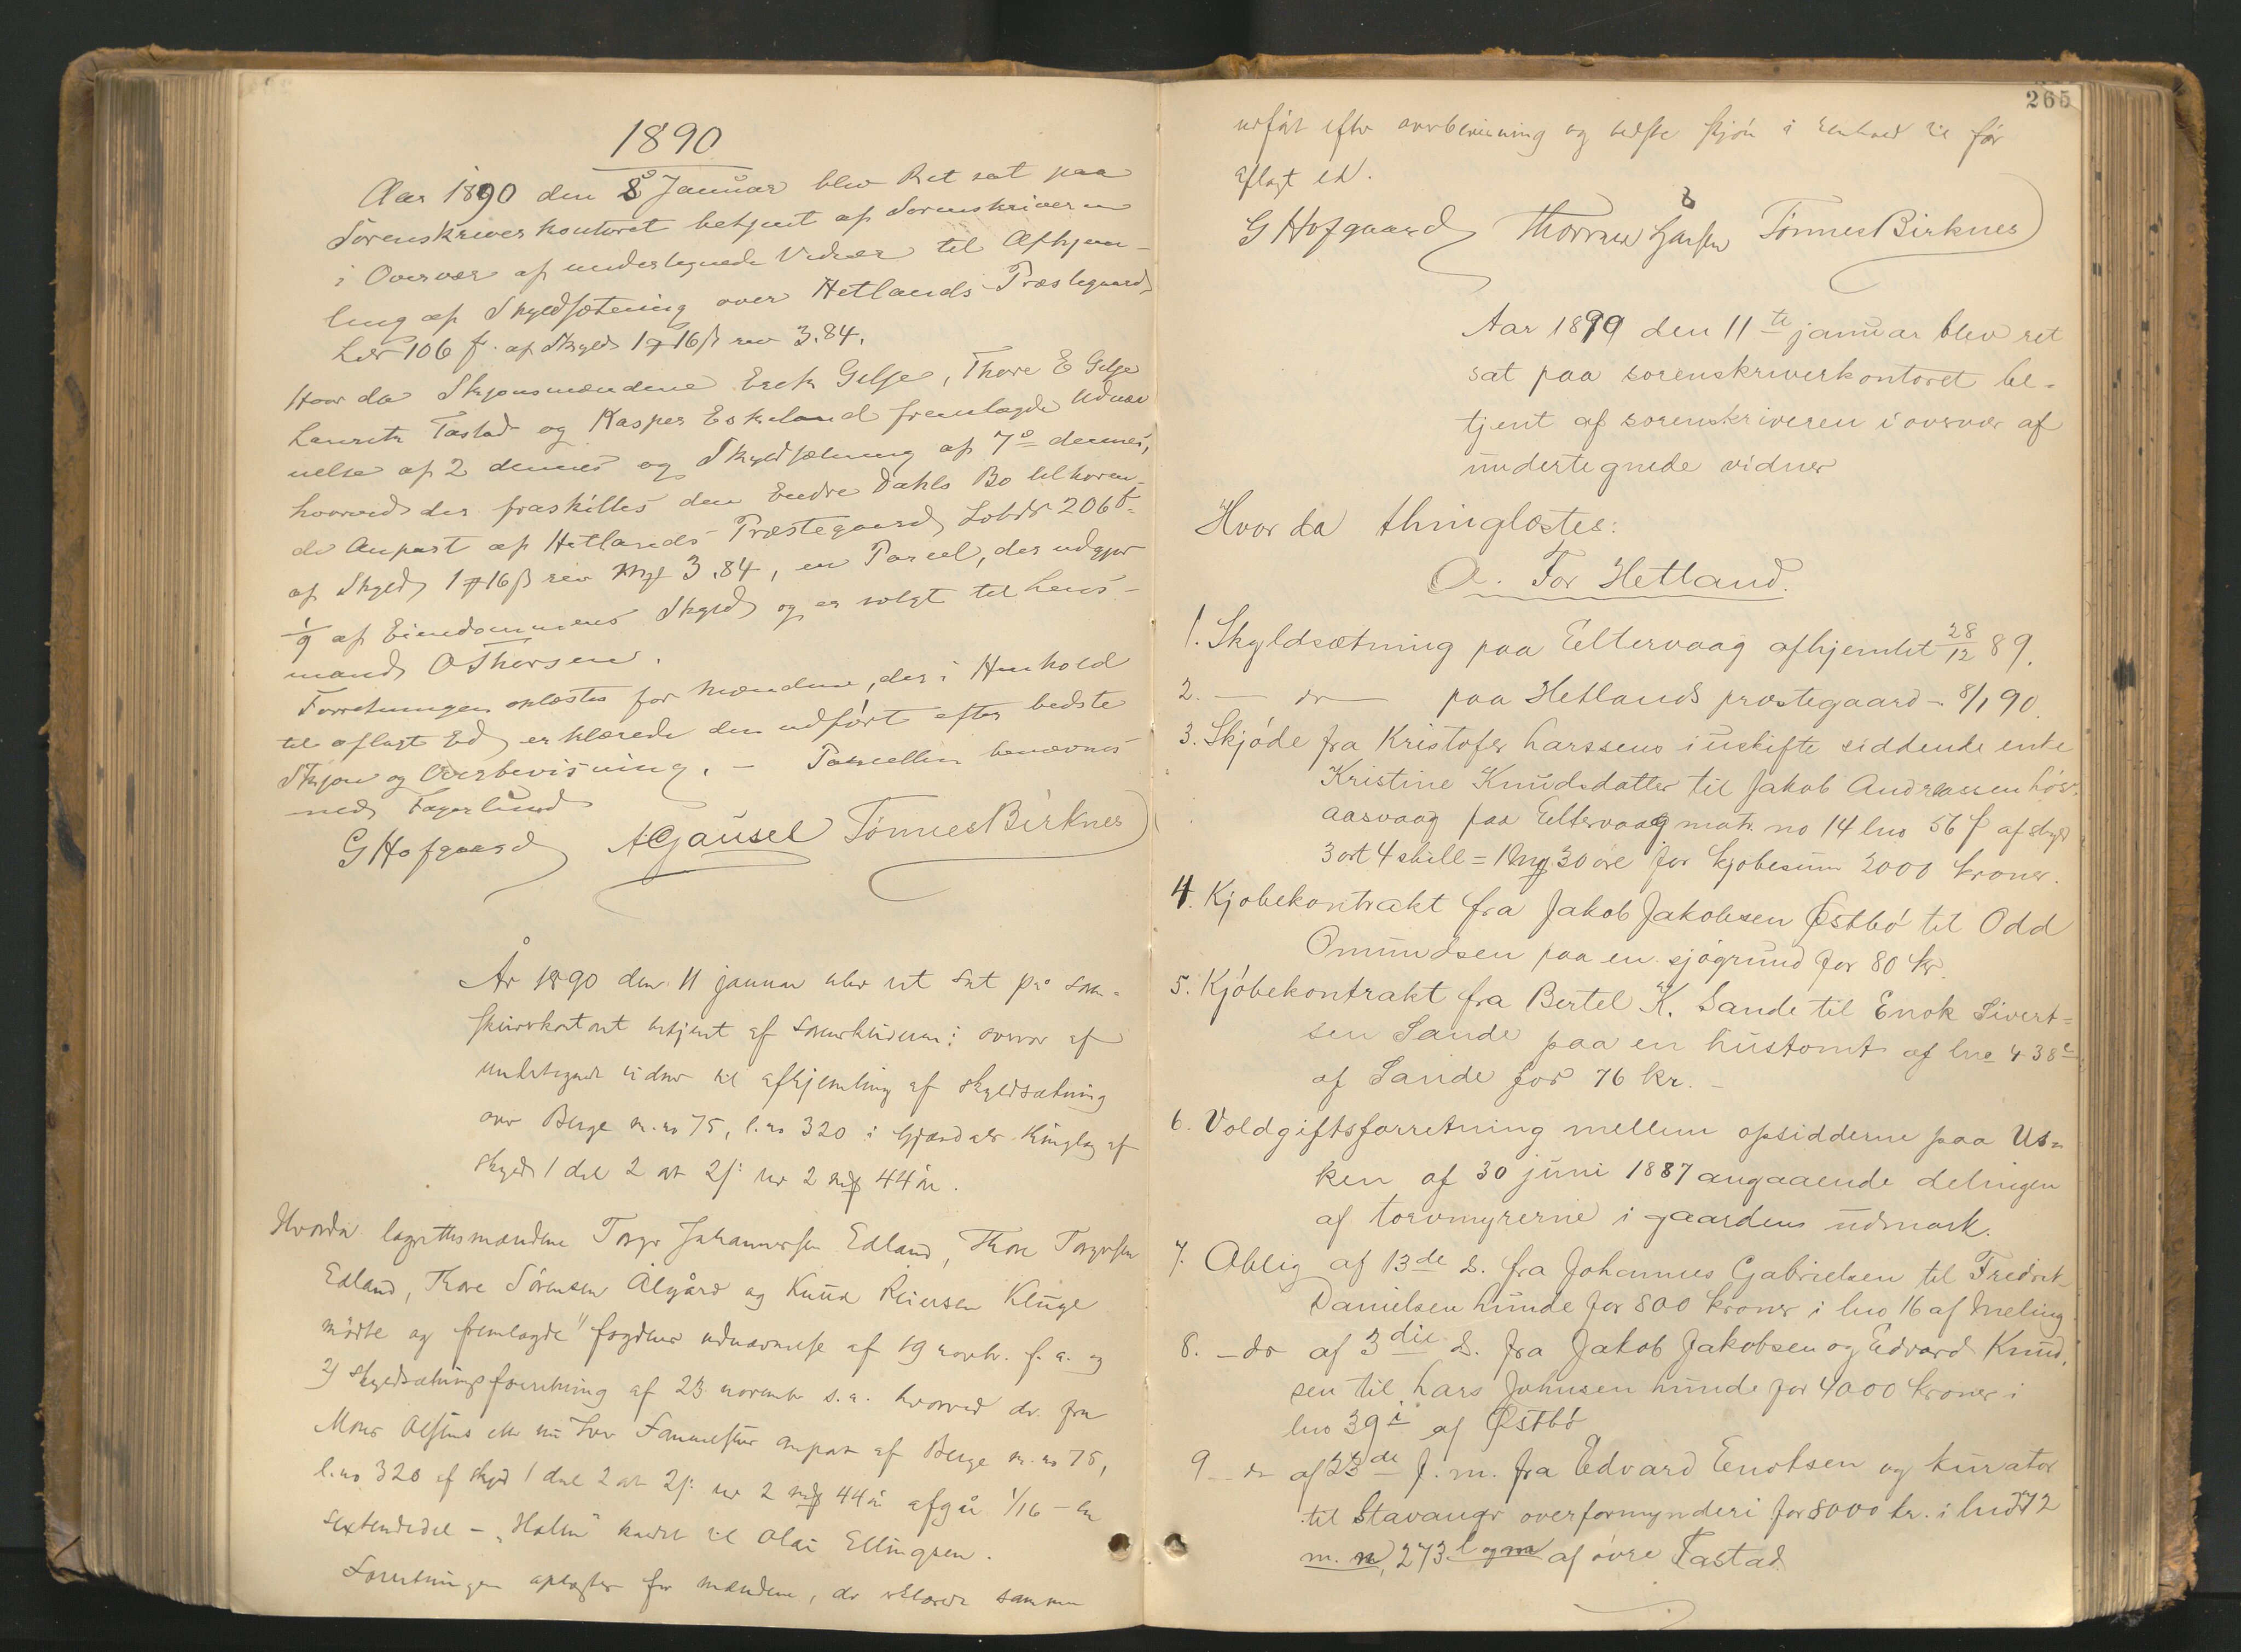 1890
Aar 1890 den 8 Januar blev Ret sat paa
Sorenskriverkontoret betjent af Sorenskriveren
i Overvær af undertegnede Vidner til Afhjem-
ling af Skyldsætning over Hetlands Præstegaard
Løbr 106 f. af Skyld 16 ß rev 3.84.
Hvor da Skjønsmændene Erik Gilje, Thore E Gilje
Lauritz Tastad og Kasper Eskeland fremlagde Udnæv
nelse af 2 dennes og Skyldsætning af 7de dennes,
hvorved der fraskilles den Endre Dahls Bo tilhøren-
de Anpart af Hetlands Præstegaard Løbr 206 f
af Skyld 16 ß rev 3.84, en Parcel, der udgjør
1/9 af Eiendommens Skyld og er solgt til Lens-
mand O Thorsen.
Forretningen oplæstes for Mændene, der i Henhold
til aflagt Ed erklærede den udført efter bedste
Skjøn og Overbevisning. - Parcellen benævnes
med Fagerlund
G Hofgaard A Gausel Tønnes Birknes
År 1890 den 11 januar blev ret sat på soren-
skriverkontoret betjent af sorenskriveren i overvær af
undertegnede vidner til afhjemling af skyldsætning
over Berge m. no 75, l. no 320 i Gjesdals thinglag af
skyld 1 dal 2 ort 2 ß rev 2 mk 44 øre.
Hvorda lagrettesmændene Torger Johannessen Edland, Thore Torgersen
Edland, Thore Sørensen Ålgård og Knud Reiersen Kluge
mødte og fremlagde 1) fogdens udnævnelse af 19 novbr. f. a. og
2) skyldsætningsforretning af 23 novembr s. a. hvorved der fra
anpart af Berge m. no 75,
l. no 320 af skyld 1 dal 2 ort 2 ß rev 2 mk 44 øre afgår 1/16 - en
sextendedel - "Holen" kaldet til Olai Ellingsen.
Forretningen oplæstes for mændene, der erklærede samme
265
udført efter overbevisning og bedste skjøn i henhold til før
aflagt ed.
G Hofgaard Thorvald Larsen Tønnes Birknes
Aar 1890 den 11te januar blev ret
sat paa sorenskriverkontoret be-
tjent af sorenskriveren i overvær af
undertegnede vidner
Hvor da thinglæstes:
A. For Hetland.
1. Skyldsætning paa Eltervaag afhjemlet 28/12 89.
2. — do — paa Hetlands præstegaard - 8/1 90.
3. Skjøde fra Kristofer Larssens i uskifte siddende enke
Kristine Knudsdatter til Jakob Andreassen Høs-
aasvaag paa Eltervaag matr. no 14 lno 56 f af skyld
3 ort 4 skill = 1 mk 30 øre for kjøbesum 2000 kroner.
4. Kjøbekontrakt fra Jakob Jakobsen Østbø til Odd
Omundsen paa en sjøgrund for 80 kr.
5. Kjøbekontrakt fra Bertel K. Sande til Enok Sivert=
sen Sande paa en hustomt af lno 438 c
af Sande for 76 kr. -
6. Voldgiftsforretning mellem opsidderne paa Us=
ken af 30 juni 1887 angaaende delingen
af torvmyrerne i gaardens udmark.
7. Oblig af 13de d. fra Johannes Gabrielsen til Fredrik
Danielsen Hunde for 800 kroner i lno 16 af Meling
8. - do af 3die d. fra Jakob Jakobsen og Edvard Knud,
sen til Lars Johnsen Hunde for 4000 kroner i
lno 39 i af Østbø
9 - do af 23de f. m. fra Edvard Enoksen og kurator
til Stavanger overformynderi for 8000 kr. i lno 272
m. n, 273 l og m af øvre Tastad